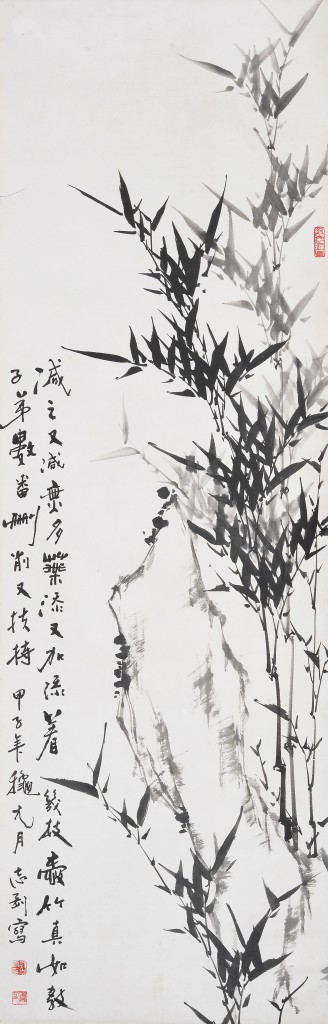 減之又減無多葉添又加添著幾枝愛竹真如教
子弟數番刪削又扶持 甲子年龝九月 志刿寫